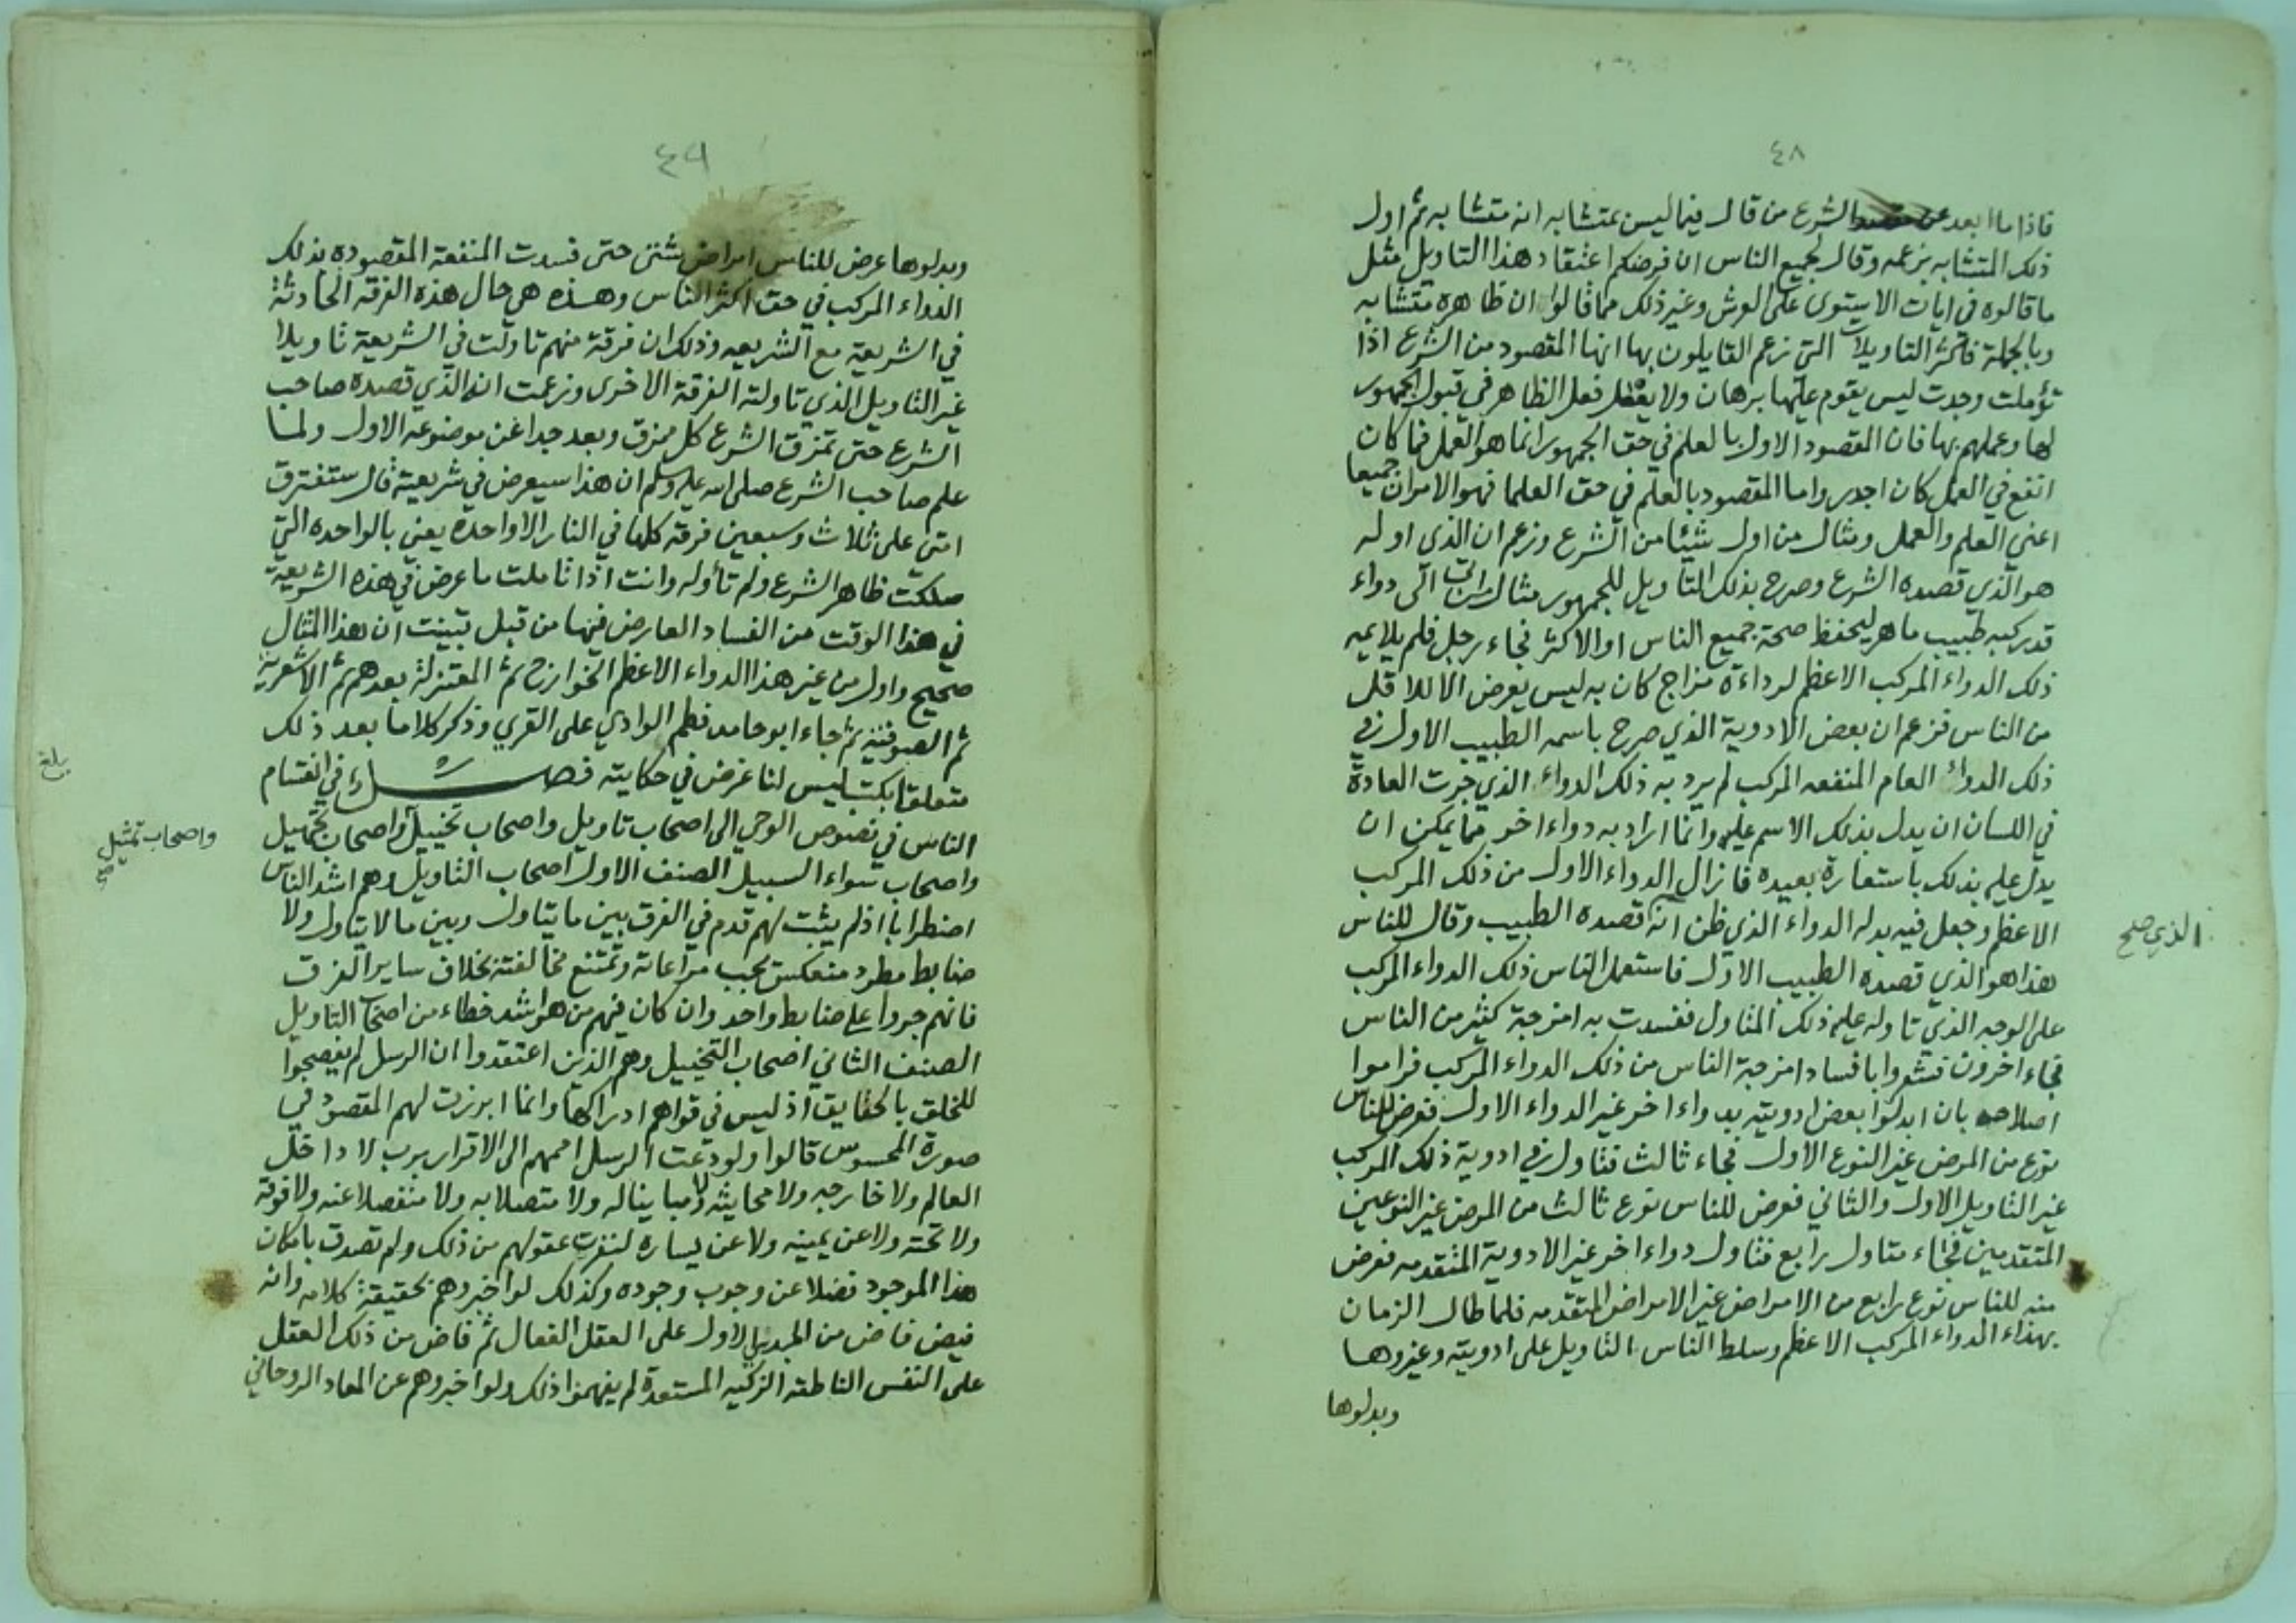 ٤٨
فاذا ما ابعد عن الشرع من قال فيما ليس بمتشابه انه متشابه ثم اول
ذلك المتشابه بزعمه وقال لجميع الناس ان فرضكم اعتقاد هذا التاويل مثل
ما قالوه في ايات الاستوى على العرش وغير ذلك مما قالوا ان ظاهره متشابه
وبالجملة فاكثر التاويلات التي زعم القايلون بها انها المقصود من الشرع اذا
تؤملت وجدت ليس يقوم عليها برهان ولا يفعل فعل الظاهر في قبول الجمهور
لها وعملهم بها فان المقصود الاول بالعلم في حق الجمهور انما هو العمل فما كان
انفع في العمل كان اجدر واما المقصود بالعلم في حق العلما فهو الامران جميعا
اعني العلم والعمل ومثال من اول شيئا من الشرع وزعم ان الذي اوله
هو الذي قصده الشرع وصرح بذلك التاويل للجمهور مثال من اتى الى دواء
قد ركبه طبيب ماهر ليحفظ صحة جميع الناس او الاكثر فجاء رجل فلم يلايمه
ذلك الدواء المركب الاعظم لرداءة مزاج كان به ليس يعرض الا للاقل
من الناس فزعم ان بعض الادوية الذي صرح باسمه الطبيب الاول في
ذلك الدواء العام المنفعه المركب لم يرد به ذلك الدواء الذي جرت العادة
في اللسان ان يدل بذلك الاسم عليه وانما اراد به دواء اخر مما يمكن ان
يدل عليه بذلك باستعارة بعيده فازال الدواء الاول من ذلك المركب
الاعظم وجعل فيه بدله الدواء الذي ظن انه قصده الطبيب وقال للناس
هذا هو الذي قصده الطبيب الاول فاستعمل الناس ذلك الدواء المركب
على الوجه الذي تاوله عليه ذلك المتاول ففسدت به امزجة كثير من الناس
فجاء اخرون فشعروا بافساد امزجة الناس من ذلك الدواء المركب فراموا
اصلاحه بان ابدلوا بعض ادويته بدواء اخر غير الدواء الاول فعرض للناس
نوع من المرض غير النوع الاول فجاء ثالث فتاول في ادوية ذلك المركب
غير التاويل الاول والثاني فعرض للناس نوع ثالث من المرض غير النوعين
المتقدمين فجاء متاول رابع فتاول دواء اخر غير الادوية المتقدمه فعرض
منه للناس نوع رابع من الامراض غير الامراض المتقدمه فلما طال الزمان
بهذاء الدواء المركب الاعظم وسلط الناس التاويل على ادويته وغيروها
وبدلوها
الذي صح
٤٩
وبدلوها عرض للناس امراض شتى حتى فسدت المنفعة المقصوده بذلك
الدواء المركب في حق اكثر الناس وهذه هي حال هذه الفرقه الحادثة
في الشريعة مع الشريعه وذلك ان فرقة منهم تاولت في الشريعة تاويلا
غير التاويل الذي تاولته الفرقة الاخرى وزعمت انه الذي قصده صاحب
الشرع حتى تمزق الشرع كل ممزق وبعد جدا عن موضوعه الاول ولما
علم صاحب الشرع صلى الله عليه وسلم ان هذا سيعرض في شريعته قال ستفترق
امتى على ثلاث وسبعين فرقه كلها في النار الا واحدة يعني بالواحده التي
سلكت ظاهر الشرع ولم تأوله وانت اذا تاملت ما عرض في هذه الشريعة
في هذا الوقت من الفساد العارض فيها من قبل تبينت ان هذا المثال
صحيح واول من غير هذا الدواء الاعظم الخوارج ثم المعتزلة بعدهم ثم الاشعرية
ثم الصوفية ثم جاء ابو حامد فطم الوادي على القري وذكر كلاما بعد ذلك
متعلقا بكتب ليس لنا غرض في حكايته فصل في انقسام
الناس في نصوص الوحي الى اصحاب تاويل واصحاب تخييل واصحاب تجهيل
واصحاب سواء السبيل الصنف الاول اصحاب التاويل وهم اشد الناس
اضطرابا اذ لم يثبت لهم قدم في الفرق بين ما يتاول وبين ما لا يتاول ولا
ضابط مطرد منعكس تجب مراعاته وتمتنع مخالفته بخلاف ساير الفرق
فانهم جروا على ضابط واحد وان كان فيهم من هو اشد خطاء من اصحاب التاويل
الصنف الثاني اصحاب التخييل وهم الذين اعتقدوا ان الرسل لم يفصحوا
للخلق بالحقايق اذ ليس في قواهم ادراكها وانما ابرزت لهم المقصود في
صورة المحسوس قالوا ولو دعت الرسل اممهم الى الاقرار برب لا داخل
العالم ولا خارجه ولا محايثه ولا مباينا له ولا متصلا به ولا منفصلا عنه ولا فوقه
ولا تحته ولا عن يمينه ولا عن يساره لنفرت عقولهم من ذلك ولم تصدق بامكان
هذا الموجود فضلا عن وجوب وجوده وكذلك لو اخبروهم بحقيقة كلامه وانه
فيض فاض من المبدي الاول على العقل الفعال ثم فاض من ذلك العقل
على النفس الناطقه الزكيه المستعدة لم يفهموا ذلك ولو اخبروهم عن المعاد الروحاني
واصحاب تمثيل
صح